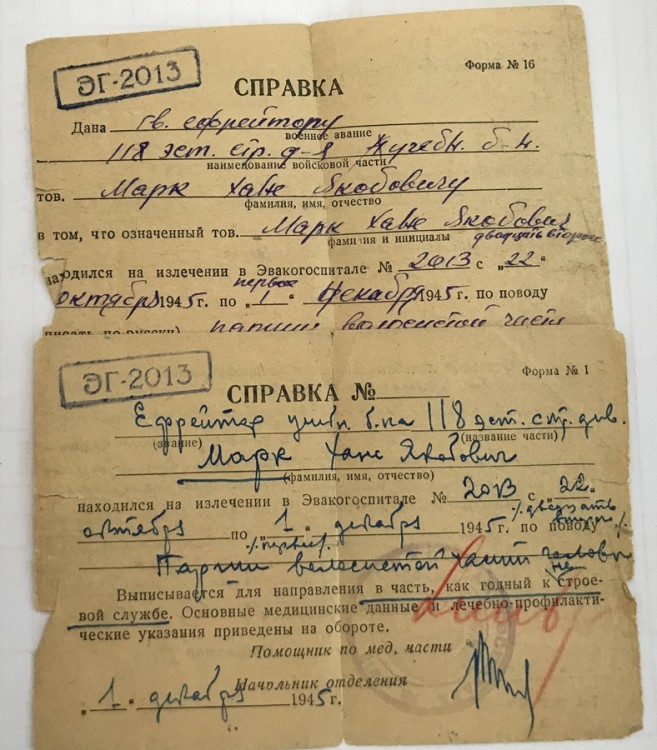 ЭГ-2013
Форма № 16
СПРАВКА
Дана гв. ефрейтору
военное звание
118 эст. стр. д-я учебн. б-н.
наименование войсковой части
тов. Марк Ханс Якобовичу
фамилия, имя, отчество
в том, что означенный тов. Марк Ханс Якобович
фамилия и инициалы двадцать второго
находился на излечении в Эвакогоспитале № 2013 с „22“
первое
октября 1945 г. по „1“ декабря 1945 г. по поводу
писать по-русски) парши волосистой части
ЭГ-2013
Форма № 1
СПРАВКА №
Ефрейтор учебн. б-на 118 эст. стр. див.
(звание) (название части)
Марк Ханс Якобович
(фамилия, имя, отчество)
находился на излечении в Эвакогоспитале № 2013 с „22“
/двадцать
октября по „1“ декабря 1945 г. по поводу
/первое/
Парши волосистой части головы
Выписывается для направления в часть, как годный к строе-
вой службе. Основные медицинские данные и лечебно-профилакти-
ческие указания приведены на обороте.
Помощник по мед. части
Начальник отделения
„1“ декабря 1945 г.